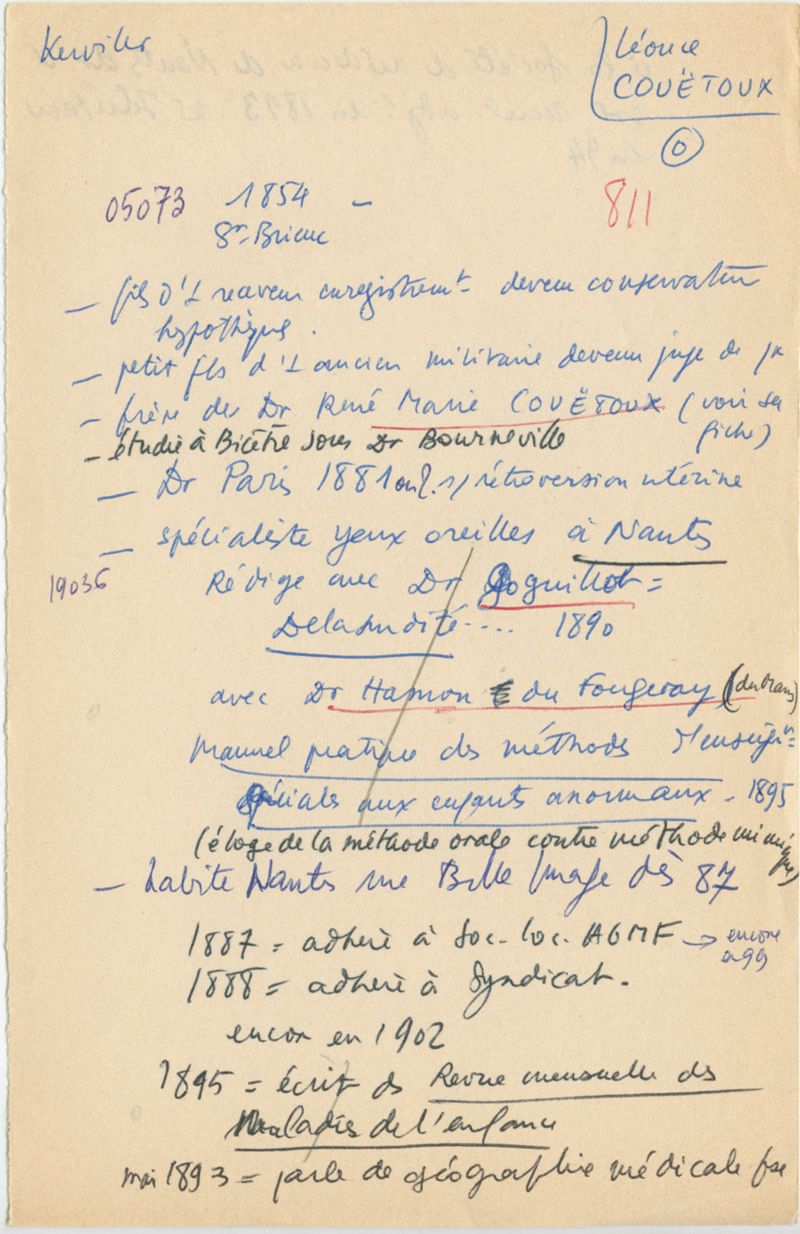 Kerviler
Léonce
COUËTOUX
0
05073 1854 –
St-Brieuc
811
– fils d'1 receveur enregistremt devenu conservateur
hypothèque.
– petit fils d'1 ancien militaire devenu juge de px
– frère de Dr René Marie COUËTOUX (voir sa
fiche)
– étudie à Bicêtre sous Dr Bourneville
– Dr Paris 1881 ou 2. s/ rétroversion utérine
– spécialiste yeux oreilles à Nantes
19036
Rédige avec Dr Goguillot =
De la surdité.... 1890
avec Dr Hamon du Fougeray (du Mans)
Manuel pratique des méthodes d'enseignt
spéciales aux enfants anormaux – 1895
(éloge de la méthode orale contre méthode mimique)
– habite Nantes rue Belle Image dès 87
1887 = adhère à Soc. loc. AGMF → encore
en 99
1888 = adhère à Syndicat.
encor en 1902
1895 = écrit ds Revue mensuelle des
Maladies de l'enfance
mai 1893 = parle de géographie médicale fse